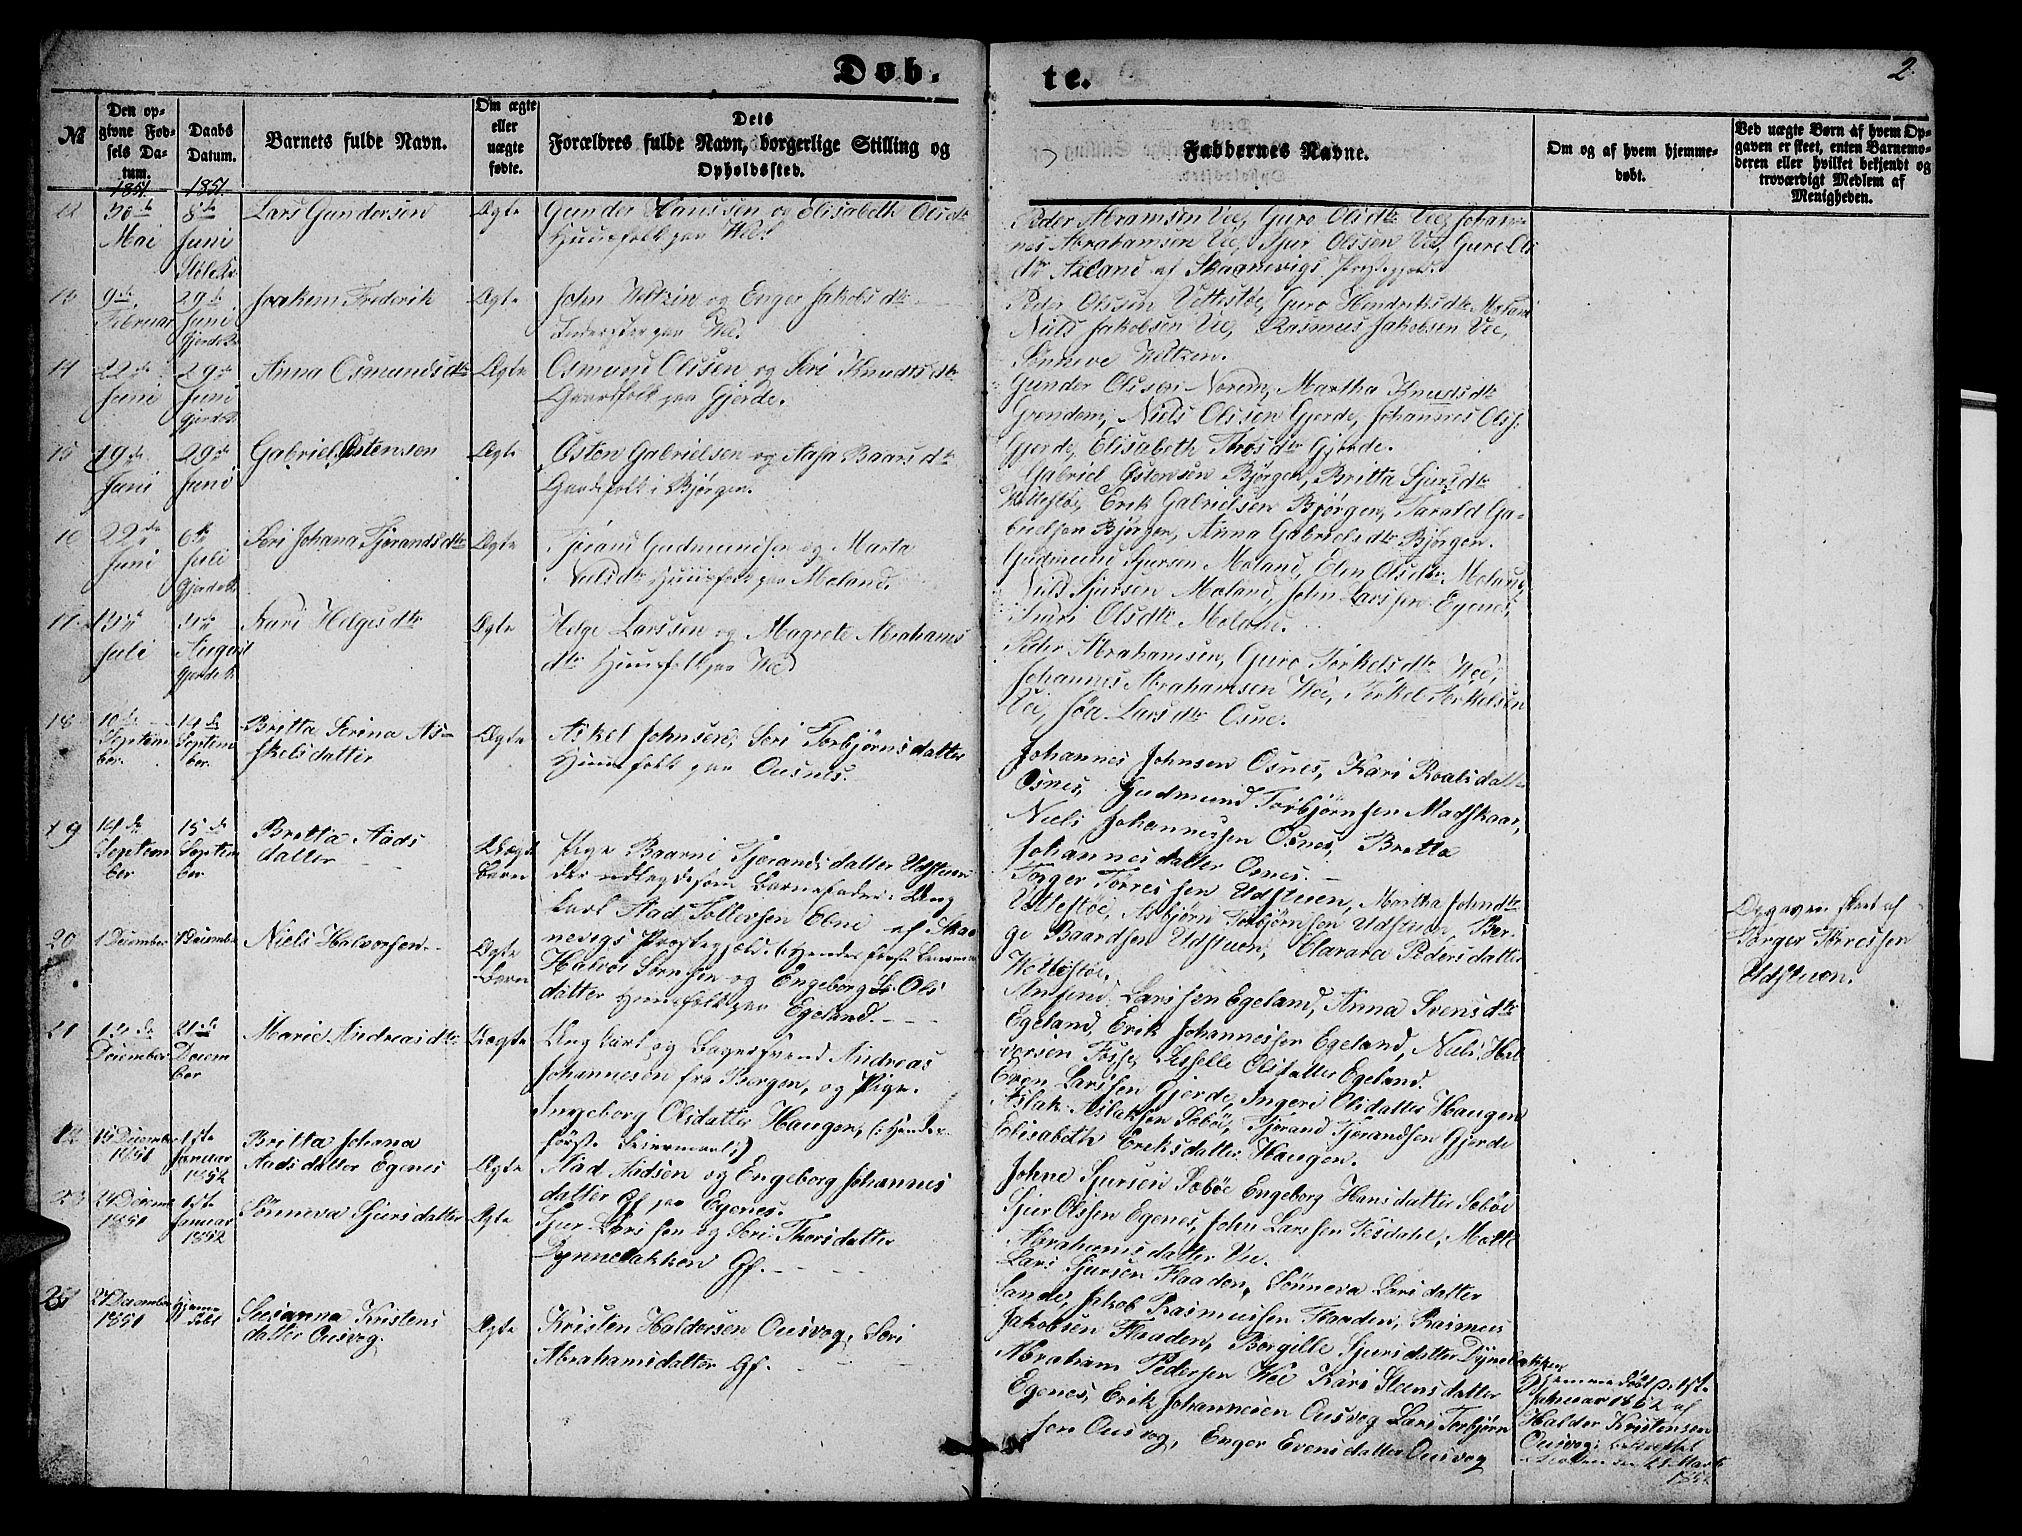 Døb.
te.
2.
№
Den op-
givne Fød-
sels Da-
tum.
1851.
Daabs
Datum.
1851.
Barnets fulde Navn.
Om ægte
eller
uægte
fødte.
Dets
Forældres fulde Navn, borgerlige Stilling og
Opholdssted.
Faddernes Navne.
Om og af hvem hjemme-
døbt.
Ved uægte Børn af hvem Op-
gaven er skeet, enten Barnemo-
deren eller hvilket bekjendt og
troværdigt Medlem af
Menigheden.
12
30te
Mai
8de
Juni
Lars Gundersen
Ægte
Gunder Hanssen og Elisabeth Olsdtr
Huusfolk paa Wee.
Peder Abramsen Vee, Guro Olsdtr Vee, Johan-
nes Abrahamsen Vee, Sjur Olssen Vee, Guro Ols
dtr Axland af Skaanevigs Præstegjeld.
9de
Februar
29de
Juni
Gjerde K.
Joakem Frederik
Ægte
John Weltzin og Enger Jakobsdtr
Inderster paa Wee.
Peder Olssen Vettestøe, Guro Hendriksdtr Moland
Nils Jakobsen Vee, Rasmus Jakobsen Vee,
Sønneve Weltzin.
14
22de
Juni
29de
Juni
Gjerde K.
Anna Osmundsdtr
Ægte
Osmund Olssen og Seri Knudtsdtr
Gaardfolk paa Gjerde.
Gunder Olssen Norem, Martha Knudsdtr
Grendem, Niels Olssen Gjerde, Johannes Olss.
Gjerde, Elisabeth Thosdtr Gjerde.
15
19de
Juni
29de
Juni
Gabriel Østensen
Ægte
Østen Gabrielsen og Aasa Baarsdtr
Gardsfolk i Bjørgen.
Gabriel Østensen Bjørgen, Britta Sjursdtr
Vettestøe, Erik Gabrielsen Bjørgen, Tarald Ga-
brielsen Bjørgen, Anna Gabrielsdtr Bjørgen.
16
22de
Juni
6te
Juli
Gjerde K.
Seri Johana Tjerandsdtr
Ægte
Tjerand Gudmundsen og Marta
Nielsdtr Huusfolk paa Moland.
Gudmund Sjursen Moland, Elen Olsdtr Moland,
Nils Sjursen Moland, John Larssen Egenes,
Siuri Olsdtr Moland.
17
13de
Juli
3de
August
Gjerde K.
Kari Helgesdtr
Ægte
Helge Larssen og Magrete Abrahams
dtr Huusfolk paa Wee
Peder Abrahamsen, Guro Torkelsdtr Wee,
Johannes Abrahamsen Wee, Torkel Torkelsen
Vee, Søe Larsdtr Osne.
18
10de
Septem
ber.
14de
Septem
ber.
Britta Serina As-
kelsdatter
Ægte
Askel Johnsen, Seri Torbjørnsdatter
Huusfolk paa Ousnes.
Johannes Johnsen Osnes, Kari Roalsdatt-
Osnes, Gudmund Torbjørnsen Madskaar,
Niels Johannessen Osnes, Bretta
Johannesdatter Osnes.
19
14de
Septem
ber
15de
Septem
ber
Bretta Aads
datter
Uægte
Barn
Pige Baarni Tjerandsdatter Udstuen
der udlagde som Barnefader: Ung
karl Aad Tollefsen Ebne af Skaa
nevigs Præstegjeld. (: Hendes første Leierm
Torger Tørressen Udstuen, Martha Johnsdtr
Vettestøe, Asbjørn Torbjørnsen Udstuen, Bør-
ge Baardsen Udstuen, Clarara Pedersdatter
Wettestøe.
Opgaven skeet af
Torger Tørressen
Udstuen.
20
1 December
1 December
Niels Halvorsen
Ægte
Barn
Halvor Sørensen og Engeborg Ols
datter Huusfolk paa Egeland.
Amund Larssen Egeland, Anna Svensdtr
Egeland, Erik Johannessen Egeland, Niels Hal
vorsen Fosse, Eshelle Olsdatter Egeland.
21
12de
December
21de
Decem
ber
Marie Andreasdtr
Uægte
Ung karl og Bagersvend Andreas
Johannesen fra Bergen, og Pige
Ingeborg Olsdatter Haugen, (: Hendes
første Leiermaal:)
Even Larssen Gjerde, Ingeri Olsdatter Haugen
Aslak Aslaksen Sæbøe, Tjerand Tjerandsen Gjerde
Elisabeth Eriksdatter Haugen.
December
1851
1ste
Januar
1852
Britta Johana
Aadsdatter Egenes
Ægte
Aad Aadsen og Engeborg Johannes
datter Gf. paa Egenes.
Johne Sjursen Sæbøe Engeborg Hansdatter Sæbøe
Sjur Olssen Egenes, John Larssen Tesdahl, Mette
Abrahamsdatter Vee.
23
24 Decemb
1851
1ste
Januar
1852
Sønneva Sjursdatter
Ægte
Sjur Larssen og Seri Thorsdatter
Dynnebakken Gf.
Lars Sjursen Flaaden, Sønneva Larsdatter
Sande, Jakob Rasmussen Flaaden, Rasmus
Jakobsen Flaaden, Borgille Sjursdatter Dynebakken
24
27 December
1851
Hjemme
døbt
Susanna Kristens
datter Ousvog
Ægte
Kristen Haldorsen Ousvog, Seri
Abrahamsdatter Gf.
Abraham Pedersen Wee Kari Steensdatter
Egenes, Erik Johannesen Ousvog Lars Torbjørn
sen Ousvog, Enger Evensdatter Ousvog
Hjemmedøbt d. 1ste
Januar 1852 af
Haldor Kristensen
Ousvog,
21 Marts
1852